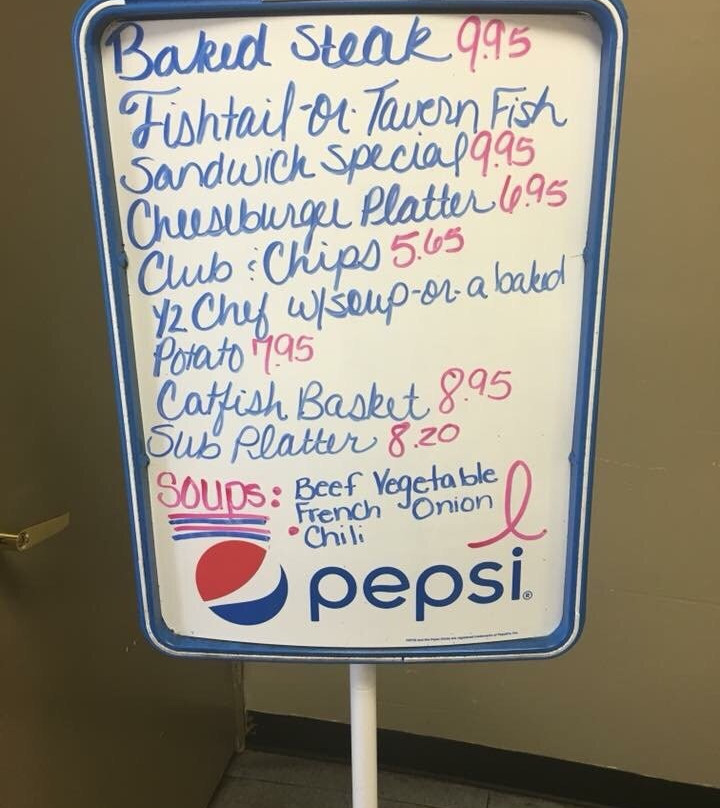 Baked Steak 9.95
Fishtail-or-Tavern Fish
Sandwich Special 9.95
Cheeseburger Platter 6.95
Club & Chips 5.65
1/2 Chef w/soup-or-a baked
Potato 7.95
Catfish Basket 8.95
Sub Platter 8.20
Soups: Beef Vegetable
French Onion
• Chili
pepsi®